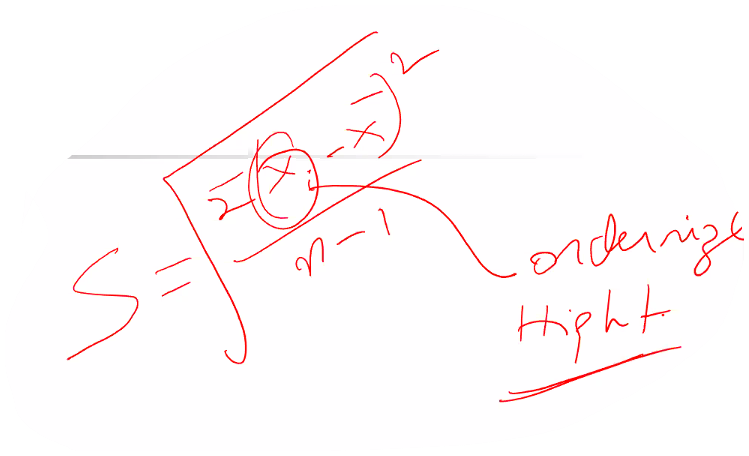 S = √(Σ(xᵢ - x̄)² / n - 1)
ordernize
Hight.